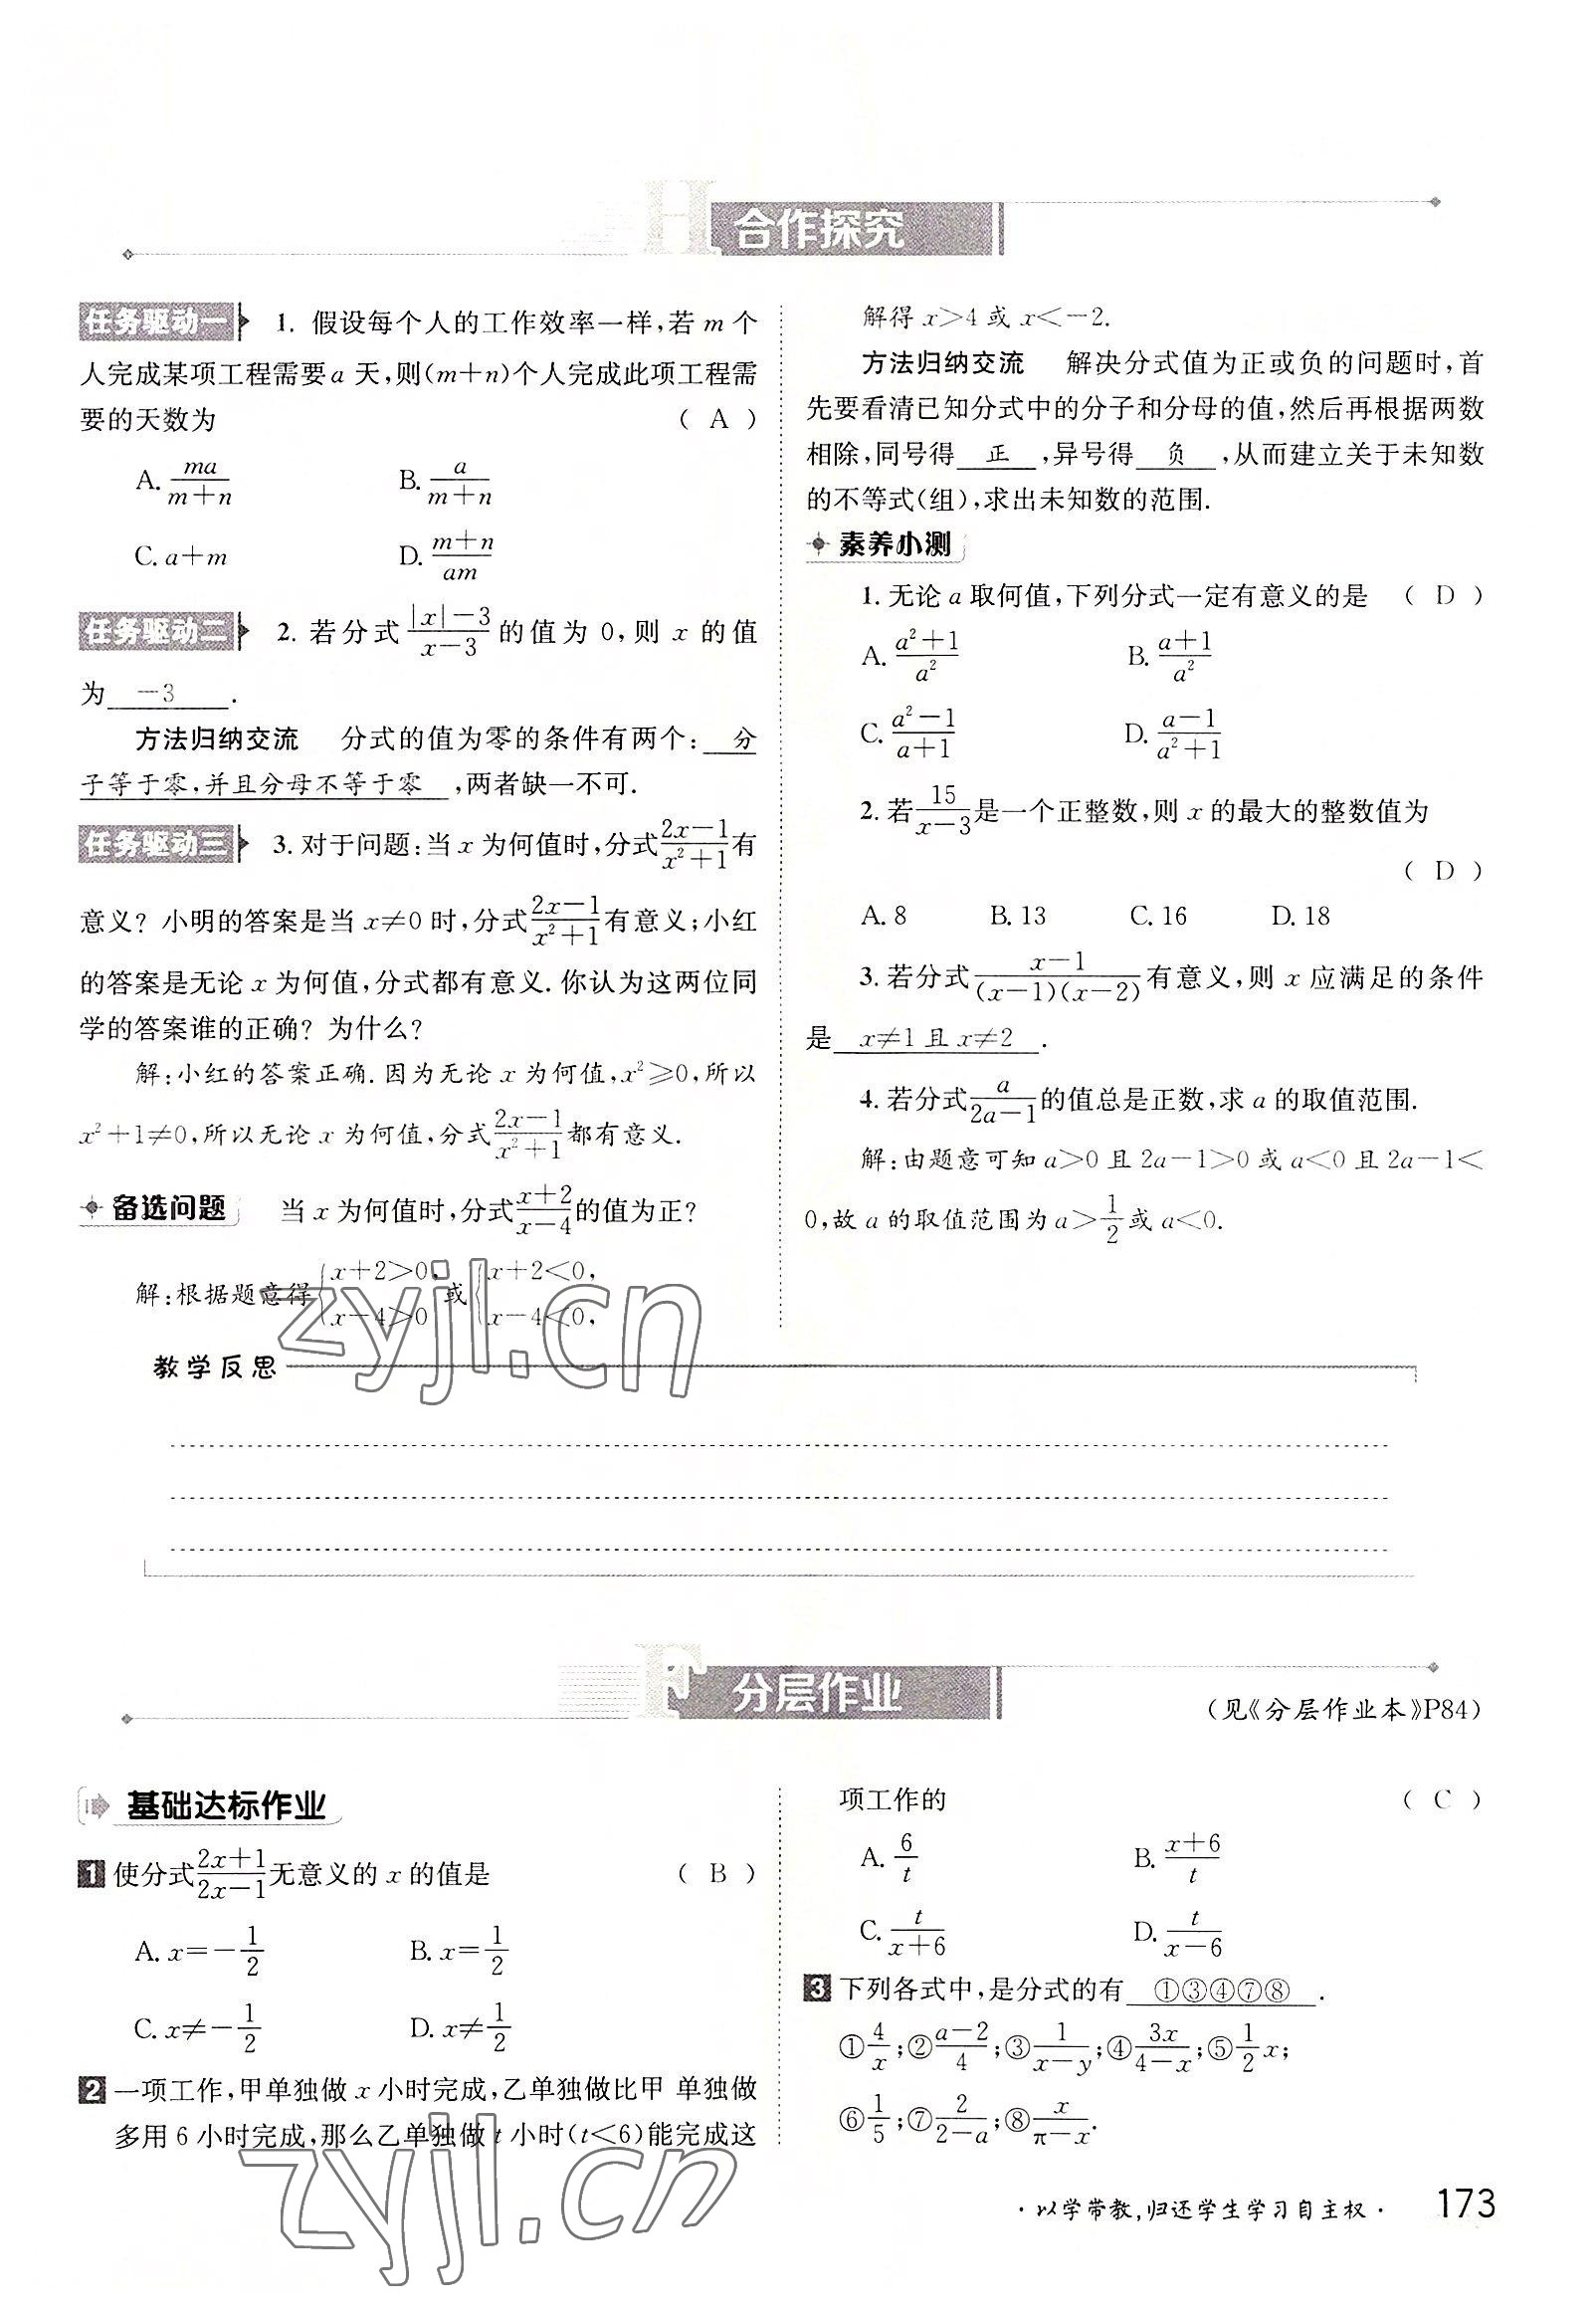 合作探究
任务驱动一 1. 假设每个人的工作效率一样,若 m 个
人完成某项工程需要 a 天,则(m+n)个人完成此项工程需
要的天数为 ( A )
A. ma/(m+n) B. a/(m+n)
C. a+m D. (m+n)/am
任务驱动二 2. 若分式 (|x|-3)/(x-3) 的值为 0,则 x 的值
为 -3 .
方法归纳交流 分式的值为零的条件有两个: 分
子等于零,并且分母不等于零 ,两者缺一不可.
任务驱动三 3. 对于问题:当 x 为何值时,分式 (2x-1)/(x²+1) 有
意义? 小明的答案是当 x≠0 时,分式 (2x-1)/(x²+1) 有意义;小红
的答案是无论 x 为何值,分式都有意义. 你认为这两位同
学的答案谁的正确? 为什么?
解:小红的答案正确. 因为无论 x 为何值,x²≥0,所以
x²+1≠0,所以无论 x 为何值,分式 (2x-1)/(x²+1) 都有意义.
备选问题 当 x 为何值时,分式 (x+2)/(x-4) 的值为正?
解:根据题意得 {x+2>0, x-4>0 或 {x+2<0, x-4<0,
解得 x>4 或 x<-2.
方法归纳交流 解决分式值为正或负的问题时,首
先要看清已知分式中的分子和分母的值,然后再根据两数
相除,同号得 正 ,异号得 负 ,从而建立关于未知数
的不等式(组),求出未知数的范围.
素养小测
1. 无论 a 取何值,下列分式一定有意义的是 ( D )
A. (a²+1)/a² B. (a+1)/a²
C. (a²-1)/(a+1) D. (a-1)/(a²+1)
2. 若 15/(x-3) 是一个正整数,则 x 的最大的整数值为
( D )
A. 8 B. 13 C. 16 D. 18
3. 若分式 (x-1)/((x-1)(x-2)) 有意义,则 x 应满足的条件
是 x≠1 且 x≠2 .
4. 若分式 a/(2a-1) 的值总是正数,求 a 的取值范围.
解:由题意可知 a>0 且 2a-1>0 或 a<0 且 2a-1<
0,故 a 的取值范围为 a>1/2 或 a<0.
zyjl.cn
教学反思
分层作业
(见《分层作业本》P84)
基础达标作业
1 使分式 (2x+1)/(2x-1) 无意义的 x 的值是 ( B )
A. x=-1/2 B. x=1/2
C. x≠-1/2 D. x≠1/2
2 一项工作,甲单独做 x 小时完成,乙单独做比甲 单独做
多用 6 小时完成,那么乙单独做 t 小时(t<6)能完成这
项工作的 ( C )
A. 6/t B. (x+6)/t
C. t/(x+6) D. t/(x-6)
3 下列各式中,是分式的有 ①③④⑦⑧ .
①4/x;②(a-2)/4;③1/(x-y);④3x/(4-x);⑤1/2 x;
⑥1/5;⑦2/(2-a);⑧x/(π-x).
zyjl.cn
·以学带教,归还学生学习自主权· 173